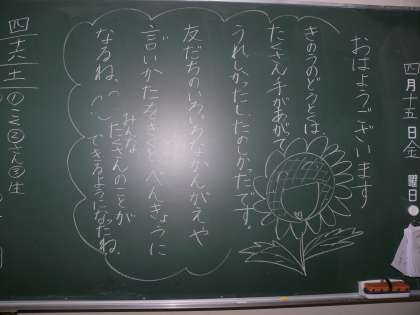 四月十五日金曜日
おはようございます
きのうのどうとくは、
たくさん手があがって
うれしかったし、たのしかったです。
友だちのいろいろなかんがえや
言いかたをきくとべんきょうに
なるね。
みんな
たくさんのことが
できるようになったね。
四 十六 土